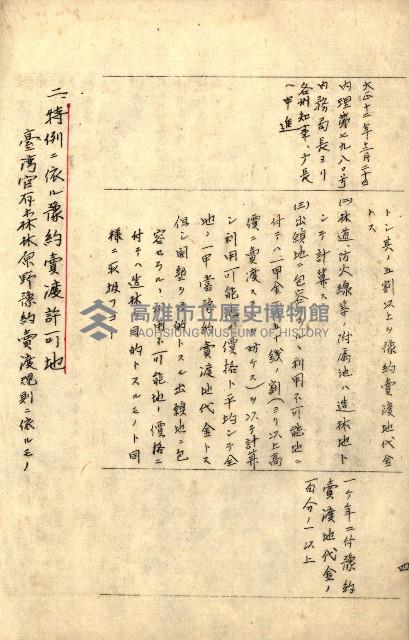 四
大正十二年三月二十四日
内理第七九八〇号
内務局長ヨリ
各州知事、庁長
ヘ申進
トシ其ノ五割以上ヲ豫約賣渡地代金
トス
(二)林道、防火線等ノ附属地ハ造林地ト
シテ計算ス
(三)出願地ニ包容セラルル利用不可能地ニ
付テハ一甲金
價ニ賣渡スモ妨ケス)ヲ以テ計算
シ利用可能地ノ價格ト平均シテ全
地ノ一甲當豫約賣渡地代金トス
但シ開墾ヲ目的トスル出願地ニ包
容セラルル利用不可能地ノ價格ニ
付テハ造林ヲ目的トスルモノト同
様ニ取扱フコト
一ヶ年ニ付豫約
賣渡地代金ノ
百分ノ一以上
二、特例ニ依ル豫約賣渡許可地
臺灣官有森林原野豫約賣渡規則ニ依ルモノ
高雄市立歷史博物館
KAOHSIUNG MUSEUM OF HISTORY